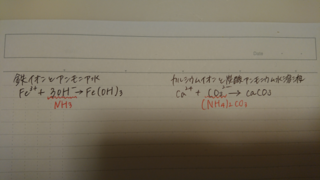 鉄イオンとアンモニア水
Fe³⁺ + 3OH⁻ → Fe(OH)₃
NH₃
カルシウムイオンと炭酸アンモニウム水溶液
Ca²⁺ + CO₃²⁻ → CaCO₃
(NH₄)₂CO₃